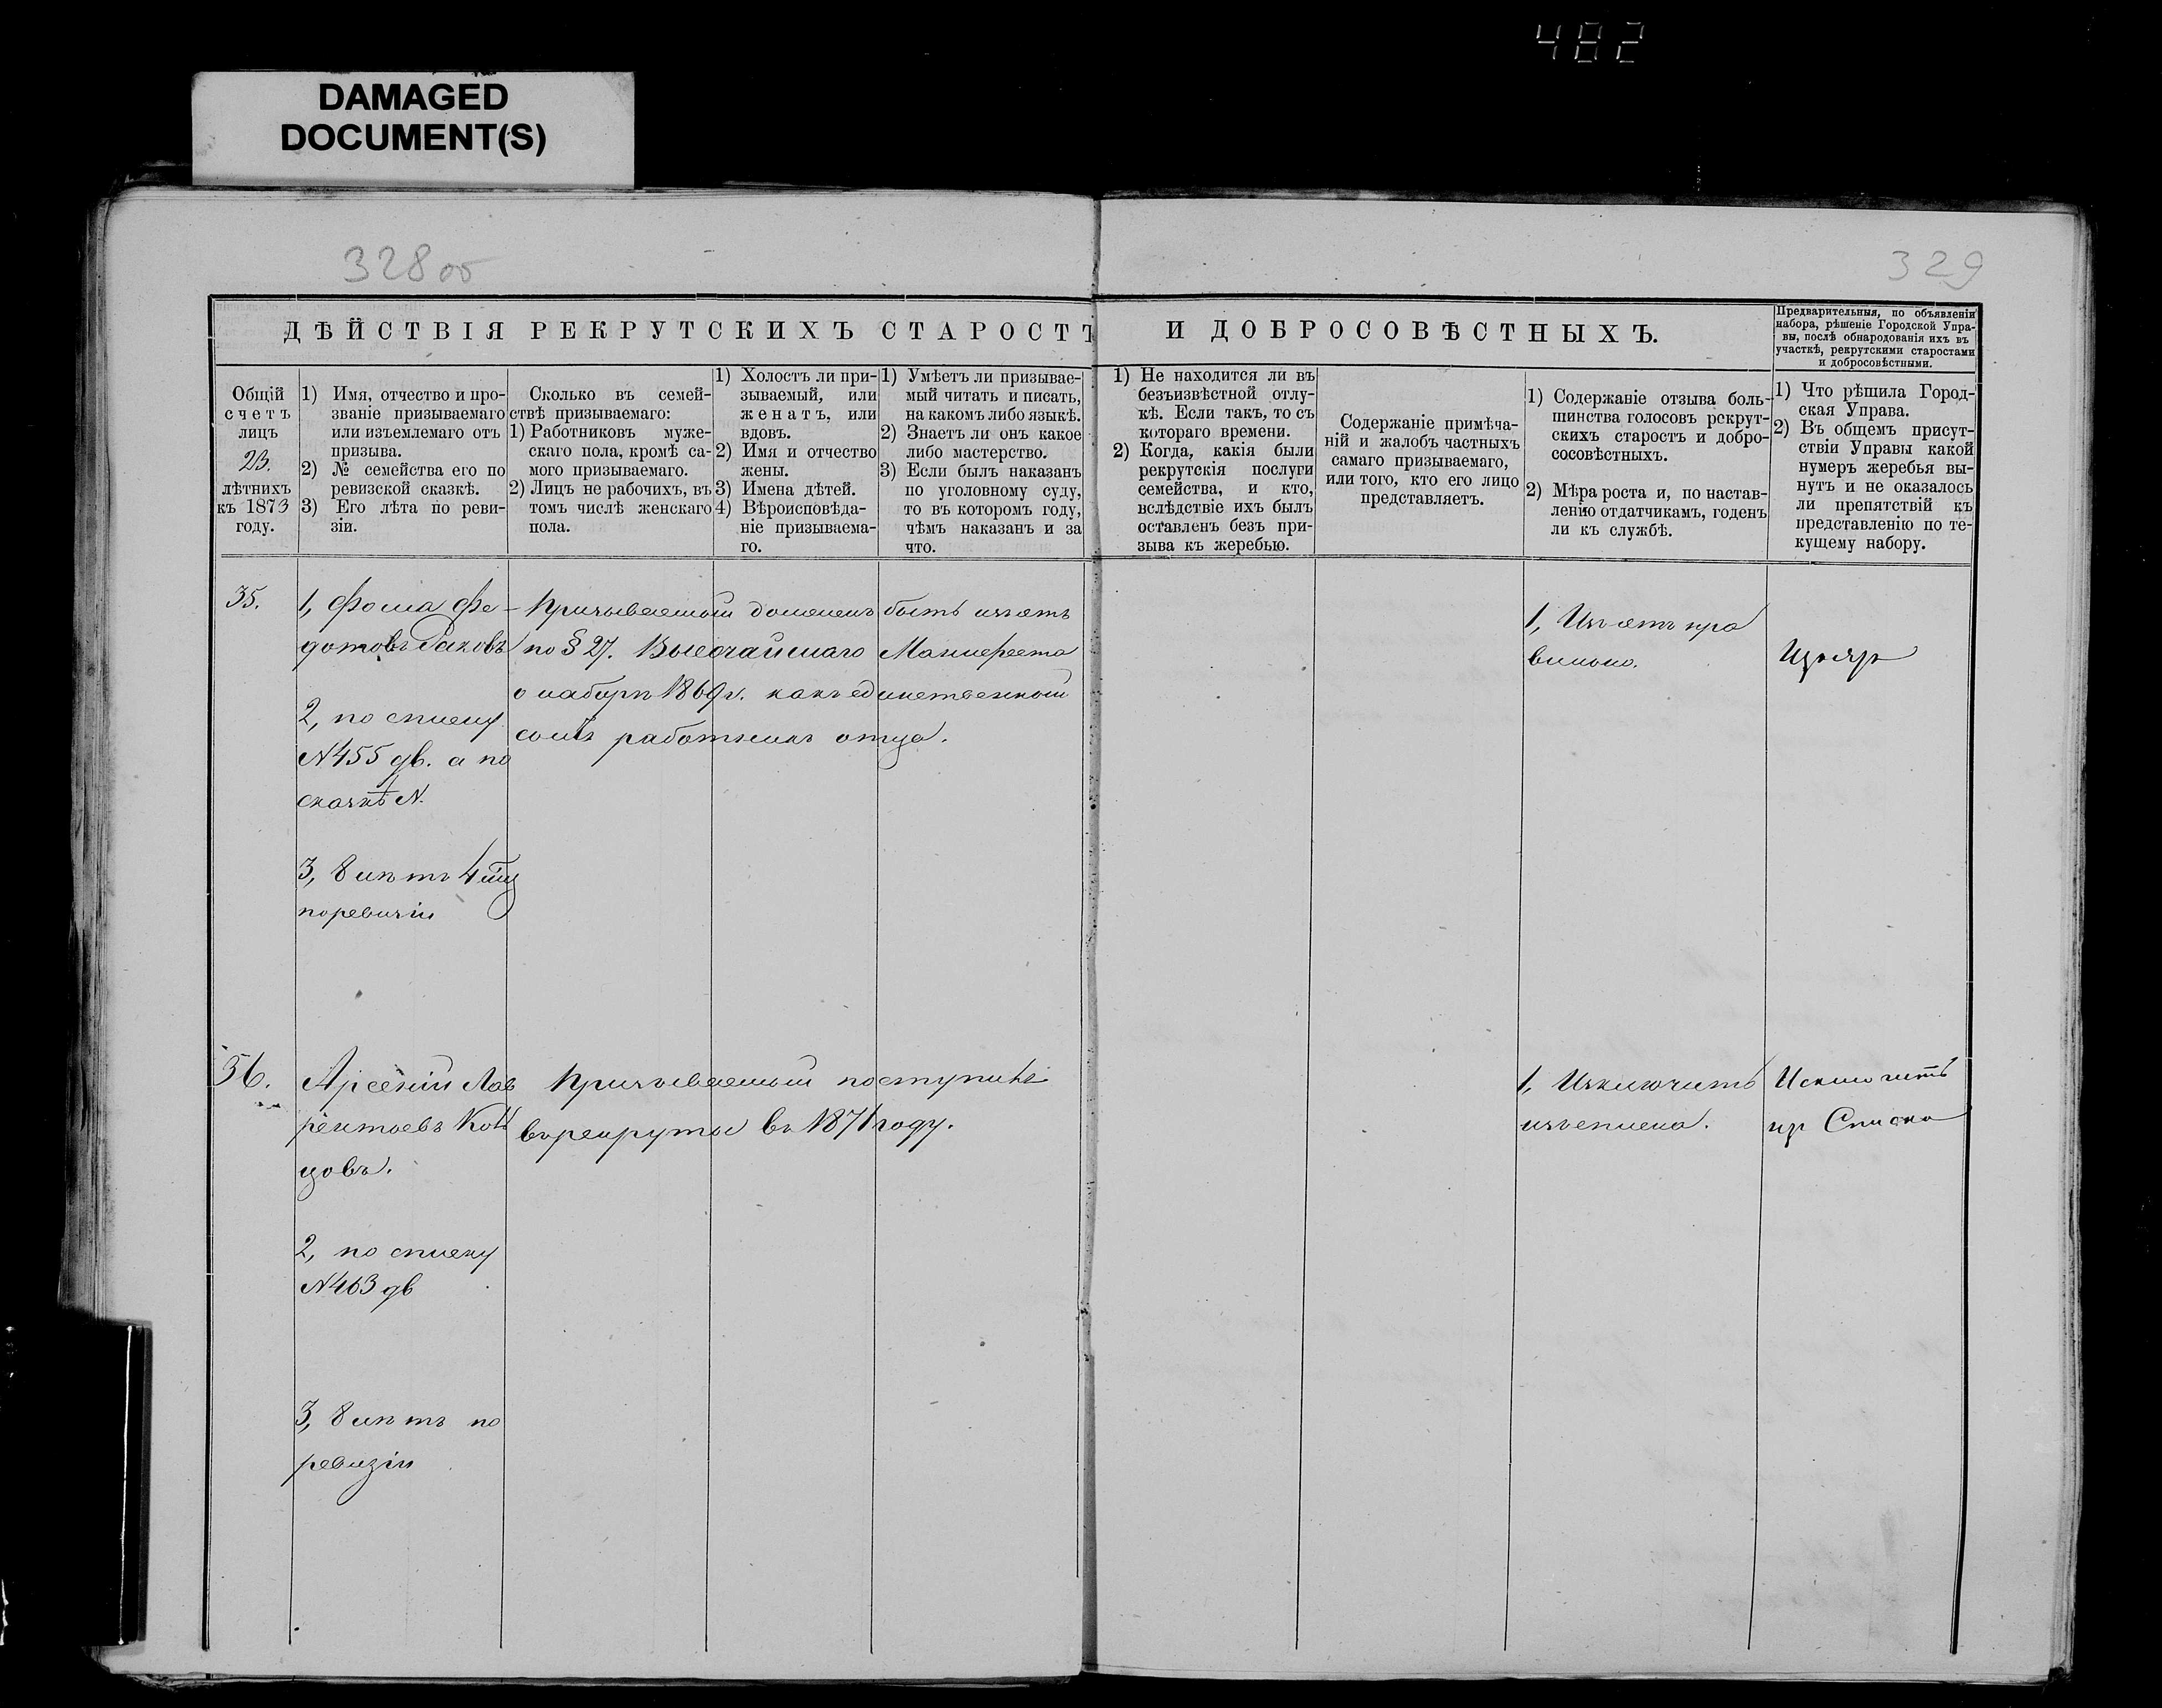 482
DAMAGED
DOCUMENT(S)
328 об
329
ДѢЙСТВІЯ РЕКРУТСКИХЪ СТАРОСТЪ И ДОБРОСОВѢСТНЫХЪ.
Предварительныя, по объявленіи
набора, рѣшеніе Городской Упра-
вы, послѣ обнародованія ихъ въ
участкѣ, рекрутскими старостами
и добросовѣстными.
Общій
счетъ
лицъ
23.
лѣтнихъ
къ 1873
году.
1) Имя, отчество и про-
званіе призываемаго
или изъемлемаго отъ
призыва.
2) № семейства его по
ревизской сказкѣ.
3) Его лѣта по реви-
зіи.
Сколько въ семей-
ствѣ призываемаго:
1) Работниковъ муже-
скаго пола, кромѣ са-
мого призываемаго.
2) Лицъ не рабочихъ, въ
томъ числѣ женскаго
пола.
1) Холостъ ли при-
зываемый, или
женатъ, или
вдовъ.
2) Имя и отчество
жены.
3) Имена дѣтей.
4) Вѣроисповѣда-
ніе призываема-
го.
1) Умѣетъ ли призывае-
мый читать и писать,
на какомъ либо языкѣ.
2) Знаетъ ли онъ какое
либо мастерство.
3) Если былъ наказанъ
по уголовному суду,
то въ которомъ году,
чѣмъ наказанъ и за
что.
1) Не находится ли въ
безъизвѣстной отлу-
кѣ. Если такъ, то съ
котораго времени.
2) Когда, какія были
рекрутскія послуги
семейства, и кто,
вслѣдствіе ихъ былъ
оставленъ безъ при-
зыва къ жеребью.
Содержаніе примѣча-
ній и жалобъ частныхъ
самаго призываемаго,
или того, кто его лицо
представляетъ.
1) Содержаніе отзыва боль-
шинства голосовъ рекрут-
скихъ старостъ и добро-
сосовѣстныхъ.
2) Мѣра роста и, по настав-
ленію отдатчикамъ, годенъ
ли къ службѣ.
1) Что рѣшила Город-
ская Управа.
2) Въ общемъ присут-
ствіи Управы какой
нумеръ жеребья вы-
нутъ и не оказалось
ли препятствій къ
представленію по те-
кущему набору.
35.
1, Фома Фе-
дотовъ Раковъ
2, по списку
№ 455 дв. а по
сказкѣ №.
3, 8 лѣтъ
по ревизіи
Призываемый долженъ быть изъятъ
по § 27. Высочайшаго Манифеста
о наборѣ 1869 г. какъ единственный
сынъ работникъ отца.
1, Изъятъ пра
вильно.
Изъятъ
36.
Арсеній Лав
рентьевъ Коп
цовъ.
2, по списку
№ 463 дв
3, 8 лѣтъ по
ревизіи
Призываемый поступилъ
въ рекруты въ 1871 году.
1, Изключить
изъ списка.
Исключить
изъ Списка